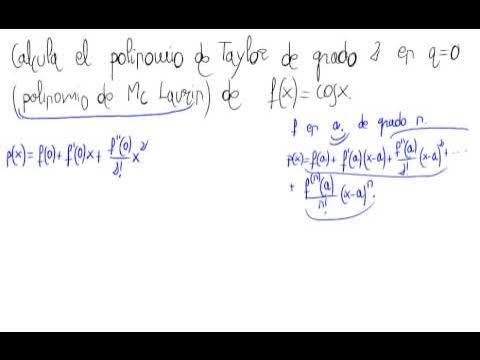 Calcula el polinomio de Taylor de grado 2 en a=0
(polinomio de Mc Laurin) de f(x) = cosx.
f en a. de grado n.
p(x) = f(0) + f'(0)x + f''(0)/2! x²
p(x) = f(a) + f'(a)(x-a) + f''(a)/2! (x-a)² + ....
+ f⁽ⁿ⁾(a)/n! (x-a)ⁿ.